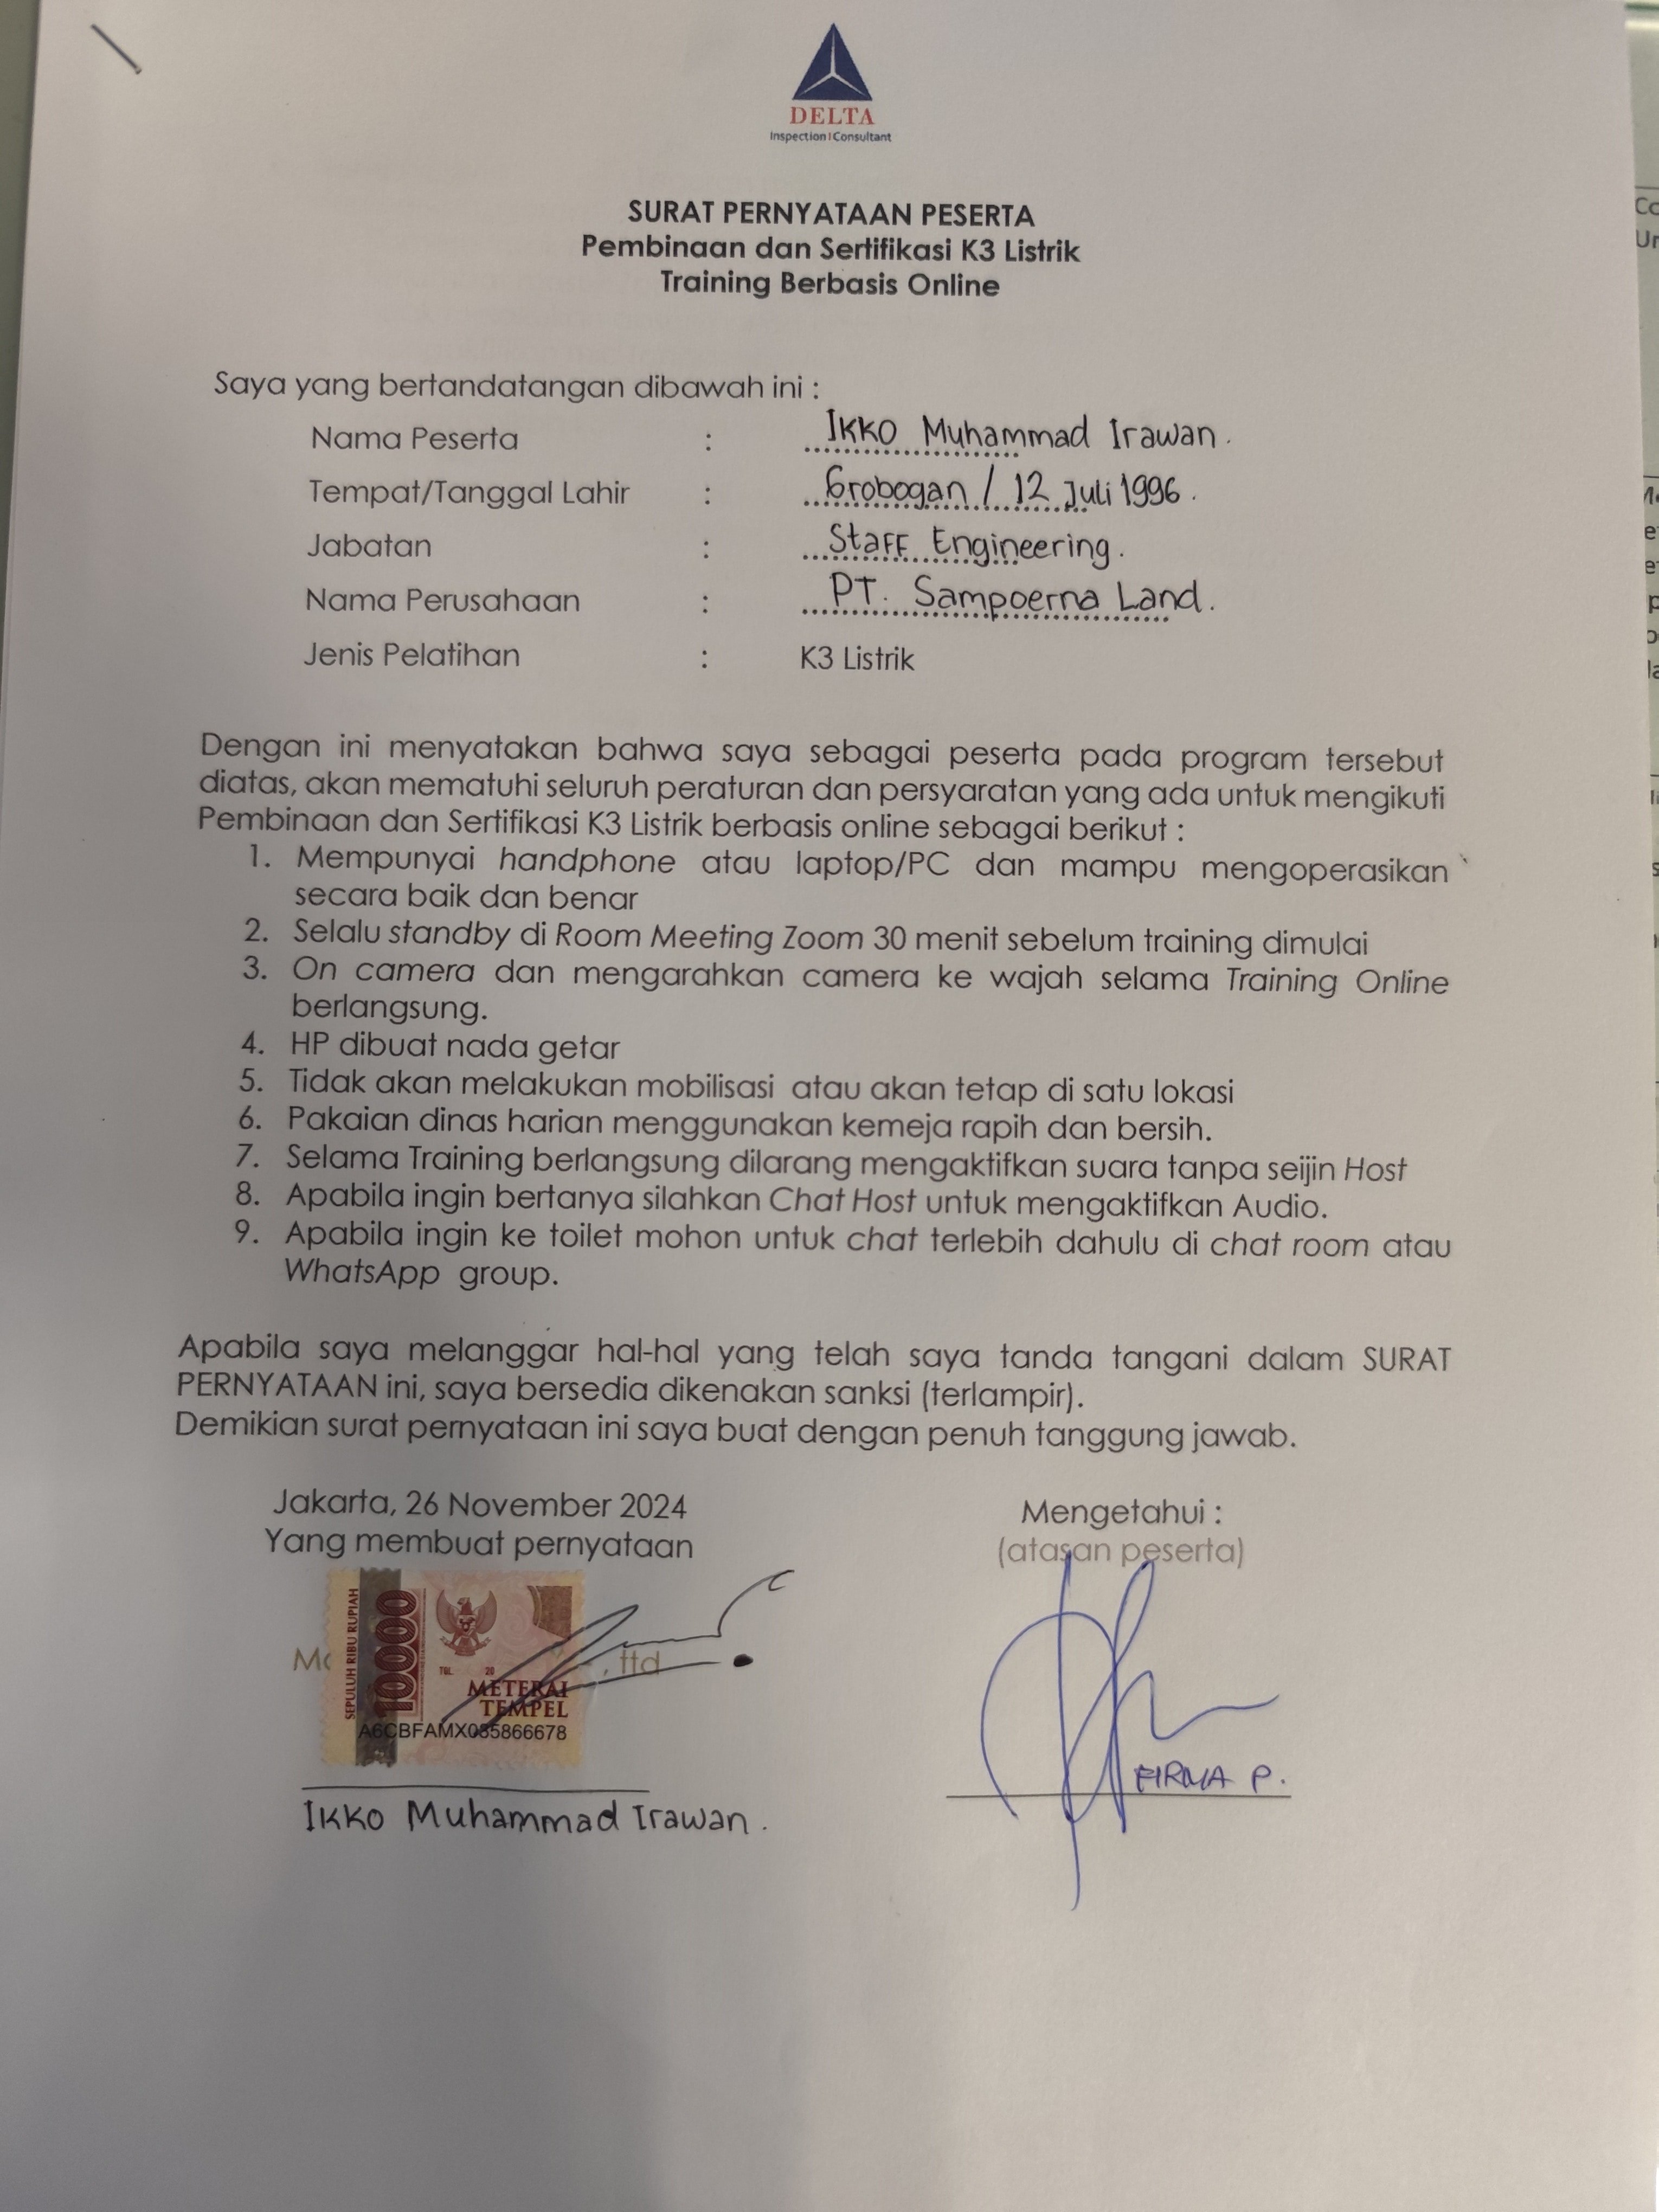 DELTA
Inspection|Consultant
SURAT PERNYATAAN PESERTA
Pembinaan dan Sertifikasi K3 Listrik
Training Berbasis Online
Saya yang bertandatangan dibawah ini :
Nama Peserta : Ikko Muhammad Irawan.
Tempat/Tanggal Lahir : Grobogan / 12 Juli 1996.
Jabatan : Staff Engineering.
Nama Perusahaan : PT. Sampoerna Land.
Jenis Pelatihan : K3 Listrik
Dengan ini menyatakan bahwa saya sebagai peserta pada program tersebut
diatas, akan mematuhi seluruh peraturan dan persyaratan yang ada untuk mengikuti
Pembinaan dan Sertifikasi K3 Listrik berbasis online sebagai berikut :
1. Mempunyai handphone atau laptop/PC dan mampu mengoperasikan
secara baik dan benar
2. Selalu standby di Room Meeting Zoom 30 menit sebelum training dimulai
3. On camera dan mengarahkan camera ke wajah selama Training Online
berlangsung.
4. HP dibuat nada getar
5. Tidak akan melakukan mobilisasi atau akan tetap di satu lokasi
6. Pakaian dinas harian menggunakan kemeja rapih dan bersih.
7. Selama Training berlangsung dilarang mengaktifkan suara tanpa seijin Host
8. Apabila ingin bertanya silahkan Chat Host untuk mengaktifkan Audio.
9. Apabila ingin ke toilet mohon untuk chat terlebih dahulu di chat room atau
WhatsApp group.
Apabila saya melanggar hal-hal yang telah saya tanda tangani dalam SURAT
PERNYATAAN ini, saya bersedia dikenakan sanksi (terlampir).
Demikian surat pernyataan ini saya buat dengan penuh tanggung jawab.
Jakarta, 26 November 2024
Yang membuat pernyataan
SEPULUH RIBU RUPIAH
10000
TGL. 20
METERAI
TEMPEL
A6CBFAMX085866678
, ttd
Ikko Muhammad Irawan.
Mengetahui :
(atasan peserta)
FIRMA P.